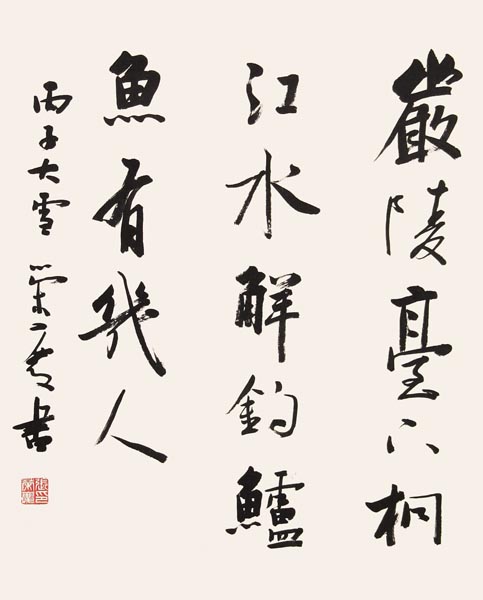 嚴陵臺下桐
江水解釣鱸
魚有幾人
丙子大雪 書